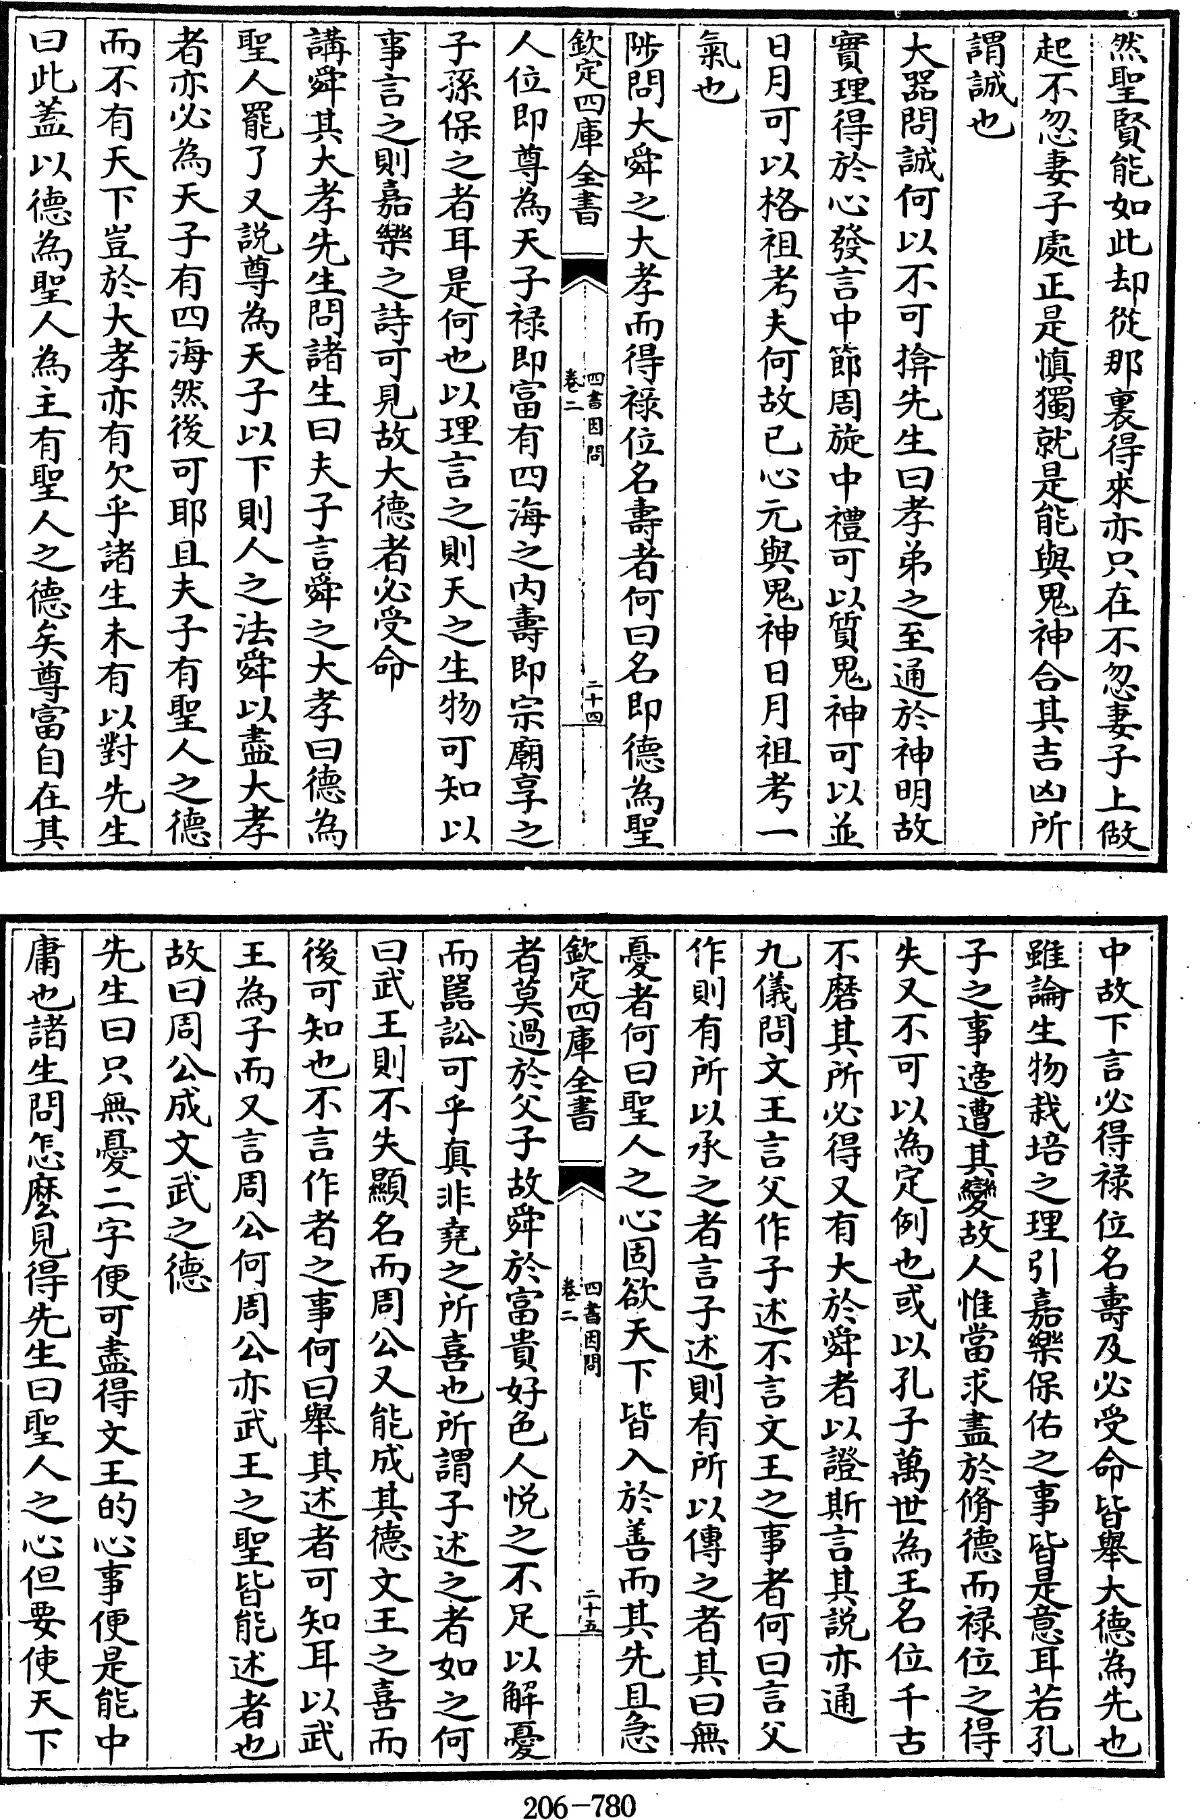 然聖賢能如此却從那裏得來亦只在不忽妻子上做
起不忽妻子處正是慎獨就是能與鬼神合其吉凶所
謂誠也
大器問誠何以不可揜先生曰孝弟之至通於神明故
實理得於心發言中節周旋中禮可以質鬼神可以並
日月可以格祖考夫何故已心元與鬼神日月祖考一
氣也
陟問大舜之大孝而得祿位名壽者何曰名即德為聖
欽定四庫全書
四書因問
卷二
二十四
人位即尊為天子祿即富有四海之內壽即宗廟享之
子孫保之者耳是何也以理言之則天之生物可知以
事言之則嘉樂之詩可見故大德者必受命
講舜其大孝先生問諸生曰夫子言舜之大孝曰德為
聖人罷了又説尊為天子以下則人之法舜以盡大孝
者亦必為天子有四海然後可耶且夫子有聖人之德
而不有天下豈於大孝亦有欠乎諸生未有以對先生
曰此蓋以德為聖人為主有聖人之德矣尊富自在其
中故下言必得祿位名壽及必受命皆舉大德為先也
雖論生物栽培之理引嘉樂保佑之事皆是意耳若孔
子之事適遭其變故人惟當求盡於脩德而祿位之得
失又不可以為定例也或以孔子萬世為王名位千古
不磨其所必得又有大於舜者以證斯言其説亦通
九儀問文王言父作子述不言文王之事者何曰言父
作則有所以承之者言子述則有所以傳之者其曰無
憂者何曰聖人之心固欲天下皆入於善而其先且急
欽定四庫全書
四書因問
卷二
二十五
者莫過於父子故舜於富貴好色人悦之不足以解憂
而嚚訟可乎真非堯之所喜也所謂子述之者如之何
曰武王則不失顯名而周公又能成其德文王之喜而
後可知也不言作者之事何曰舉其述者可知耳以武
王為子而又言周公何周公亦武王之聖皆能述者也
故曰周公成文武之德
先生曰只無憂二字便可盡得文王的心事便是能中
庸也諸生問怎麽見得先生曰聖人之心但要使天下
206-780